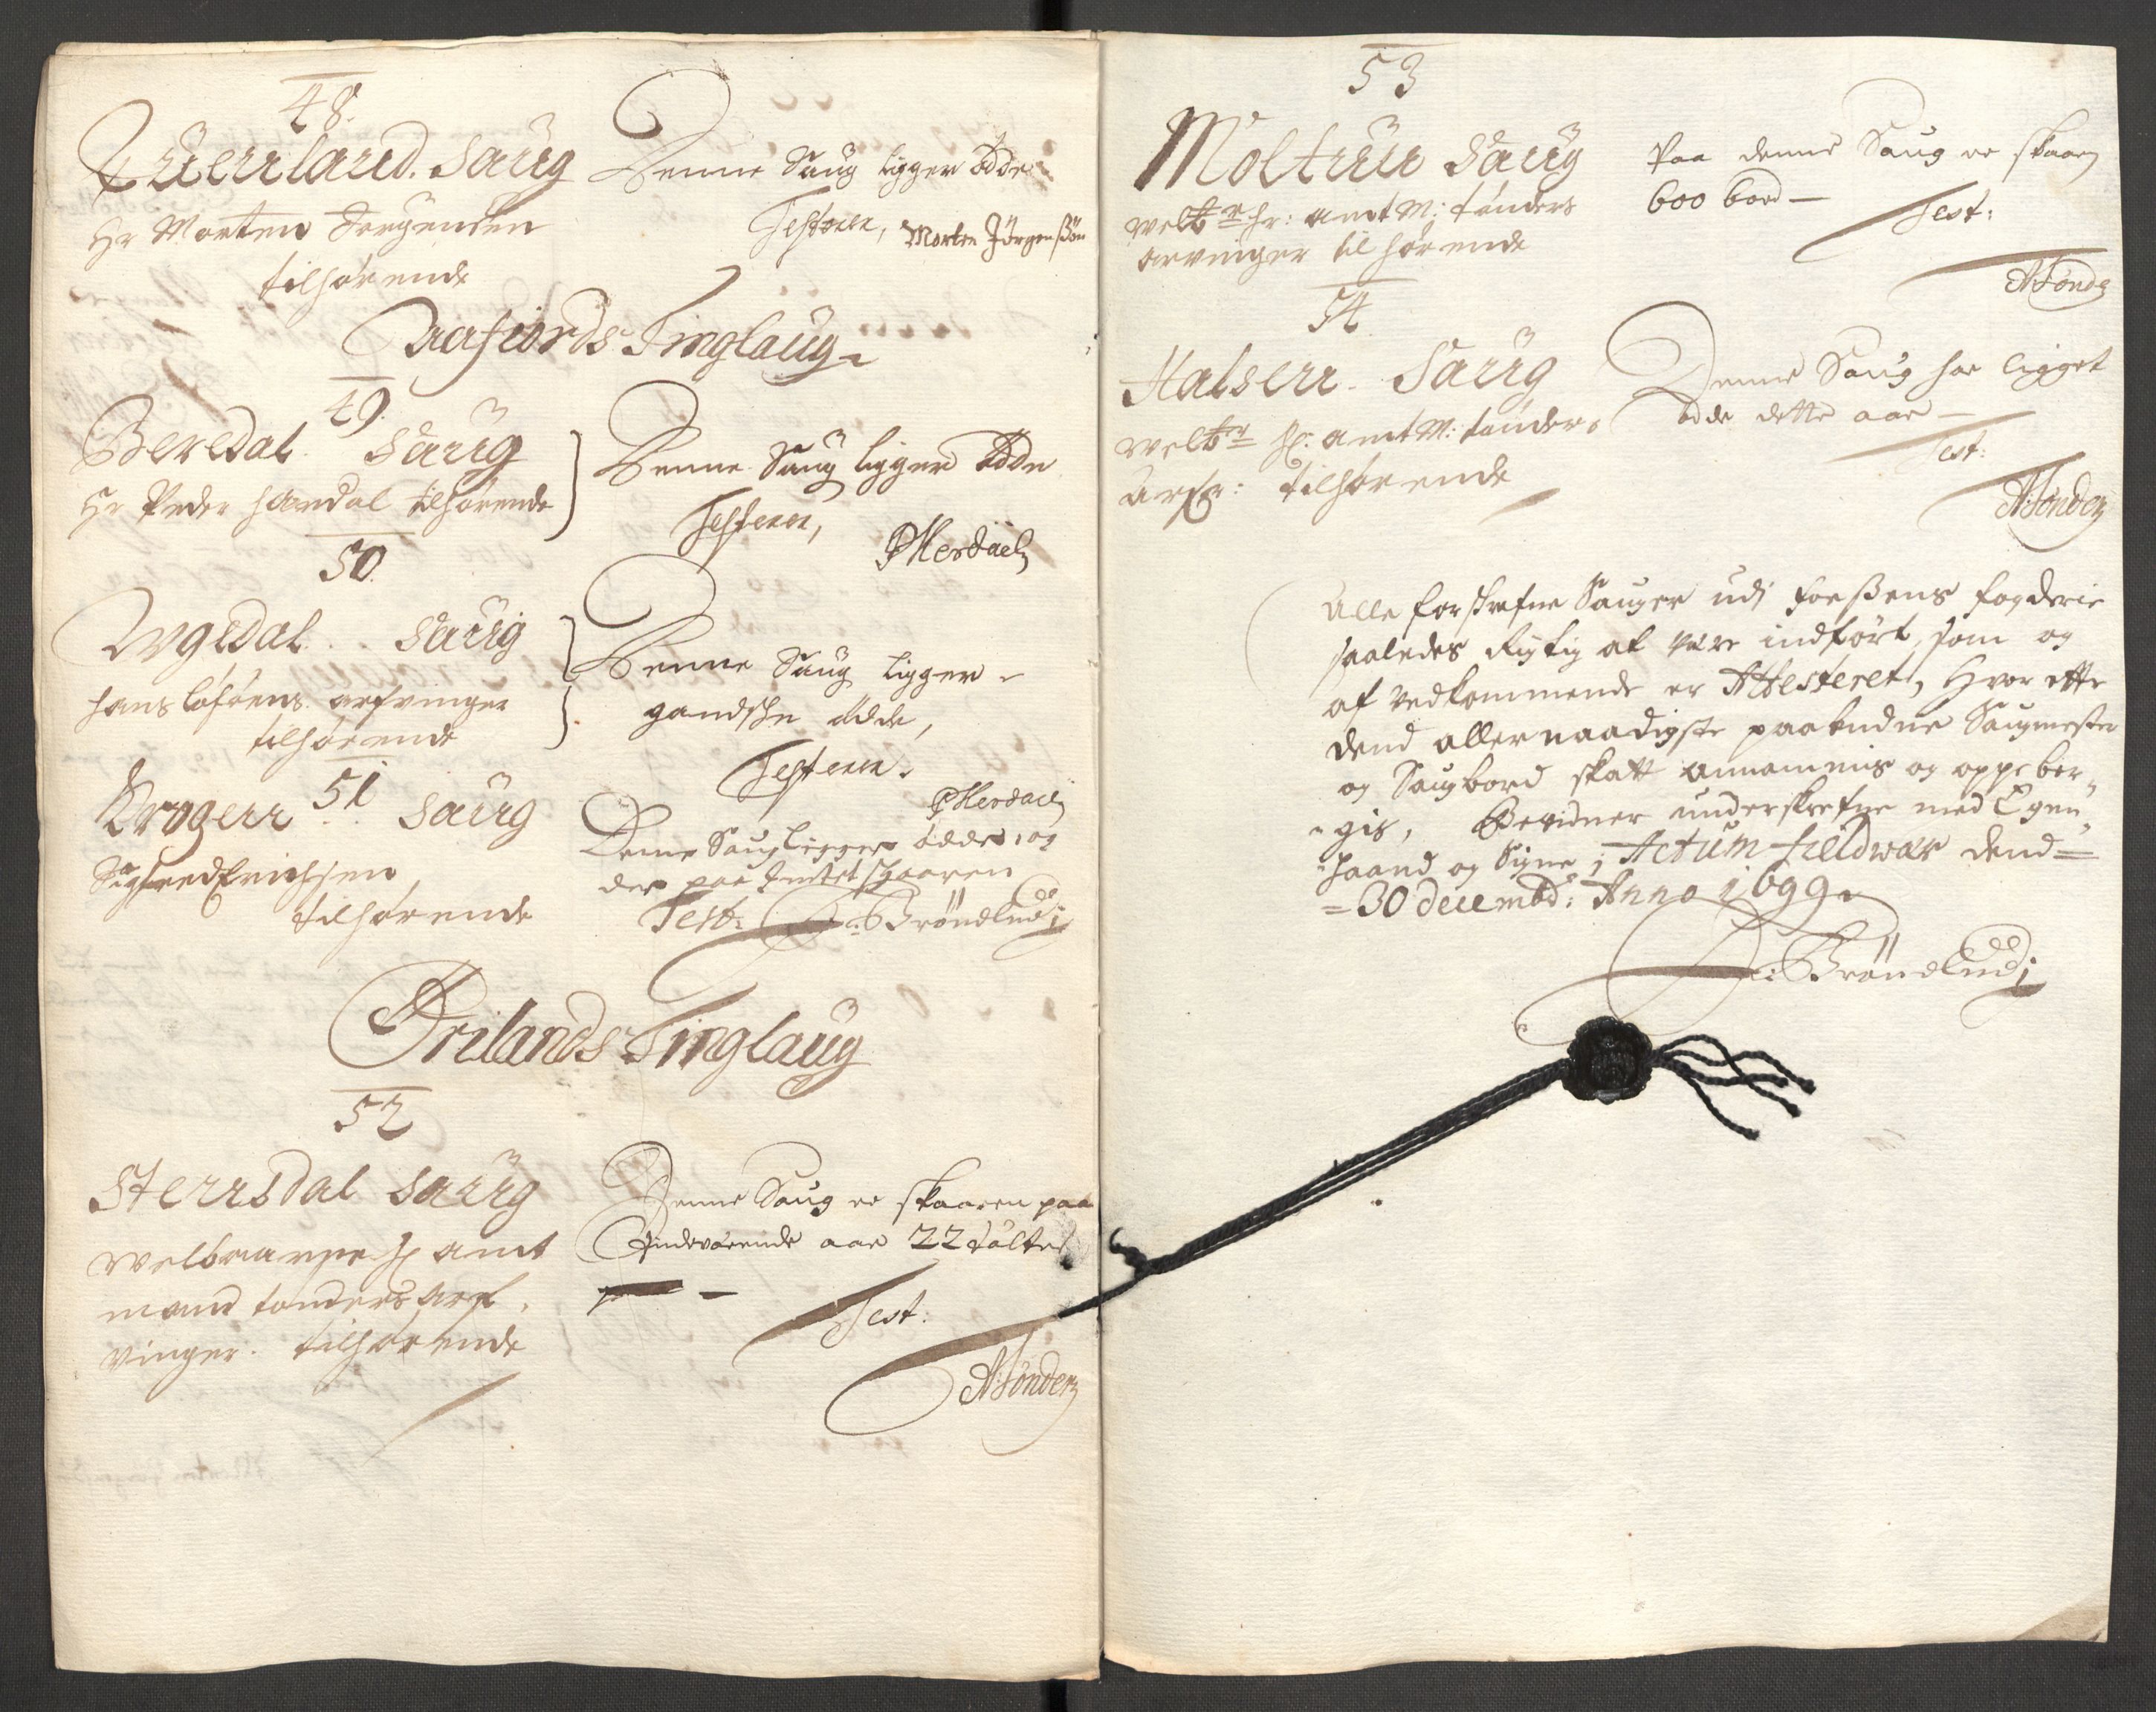 48.
Qverrland. Saug
Hr Morten Jørgensen
tilhørende
Denne Saug ligger øde
Testerer, Morten Jörgenßön
Aafiords Tinglaug
49.
Beredal Saug
Hr Peder Hærdal tilhørende
Denne Saug ligger øde
Testerer,
PHerdael
50.
Saug
Hans arfvinger
tilhørende
Denne Saug ligger
gandske øde,
Testerer.
PHerdael
51
Krogerr Saug
Sigfred Erichsen
tilhørende
Denne Saug ligger øde, og
der paa Intet skaaren
Test: Brøndlund
Ørilands Tinglaug
52
Sterrsdal Saug
Welbaarne H amt
mand tonders arf
vinger. tilhørende
Denne Saug er skaaren paa
Indeværende aar 22 tolter
Test:
ATønder
53
Moltzuu Saug
Welbr hr: amtM: tønders
arvinger tilhørende
Paa denne Saug er skaaren
600 bord —
Test:
ATønder
54
Halserr Saug
Welbr H: amtM: tønders
arfr: tilhørende
Denne Saug har ligget
øde dette aar —
Test:
ATønder
Alle forskrefne Sauger udj Foeßens fogderie
saaledes Rigtig at være indført, som og
af vedkommende er Attesteret, Hvor effter
dend allernaadigste paabudne Saugmester
og Saugbord skatt annammis og oppeber-
gis, Bevidner underskrefne med Egen
haand og Signe; Actum Fieldwær dend
30 decembr: Anno 1699.
Brøndlund